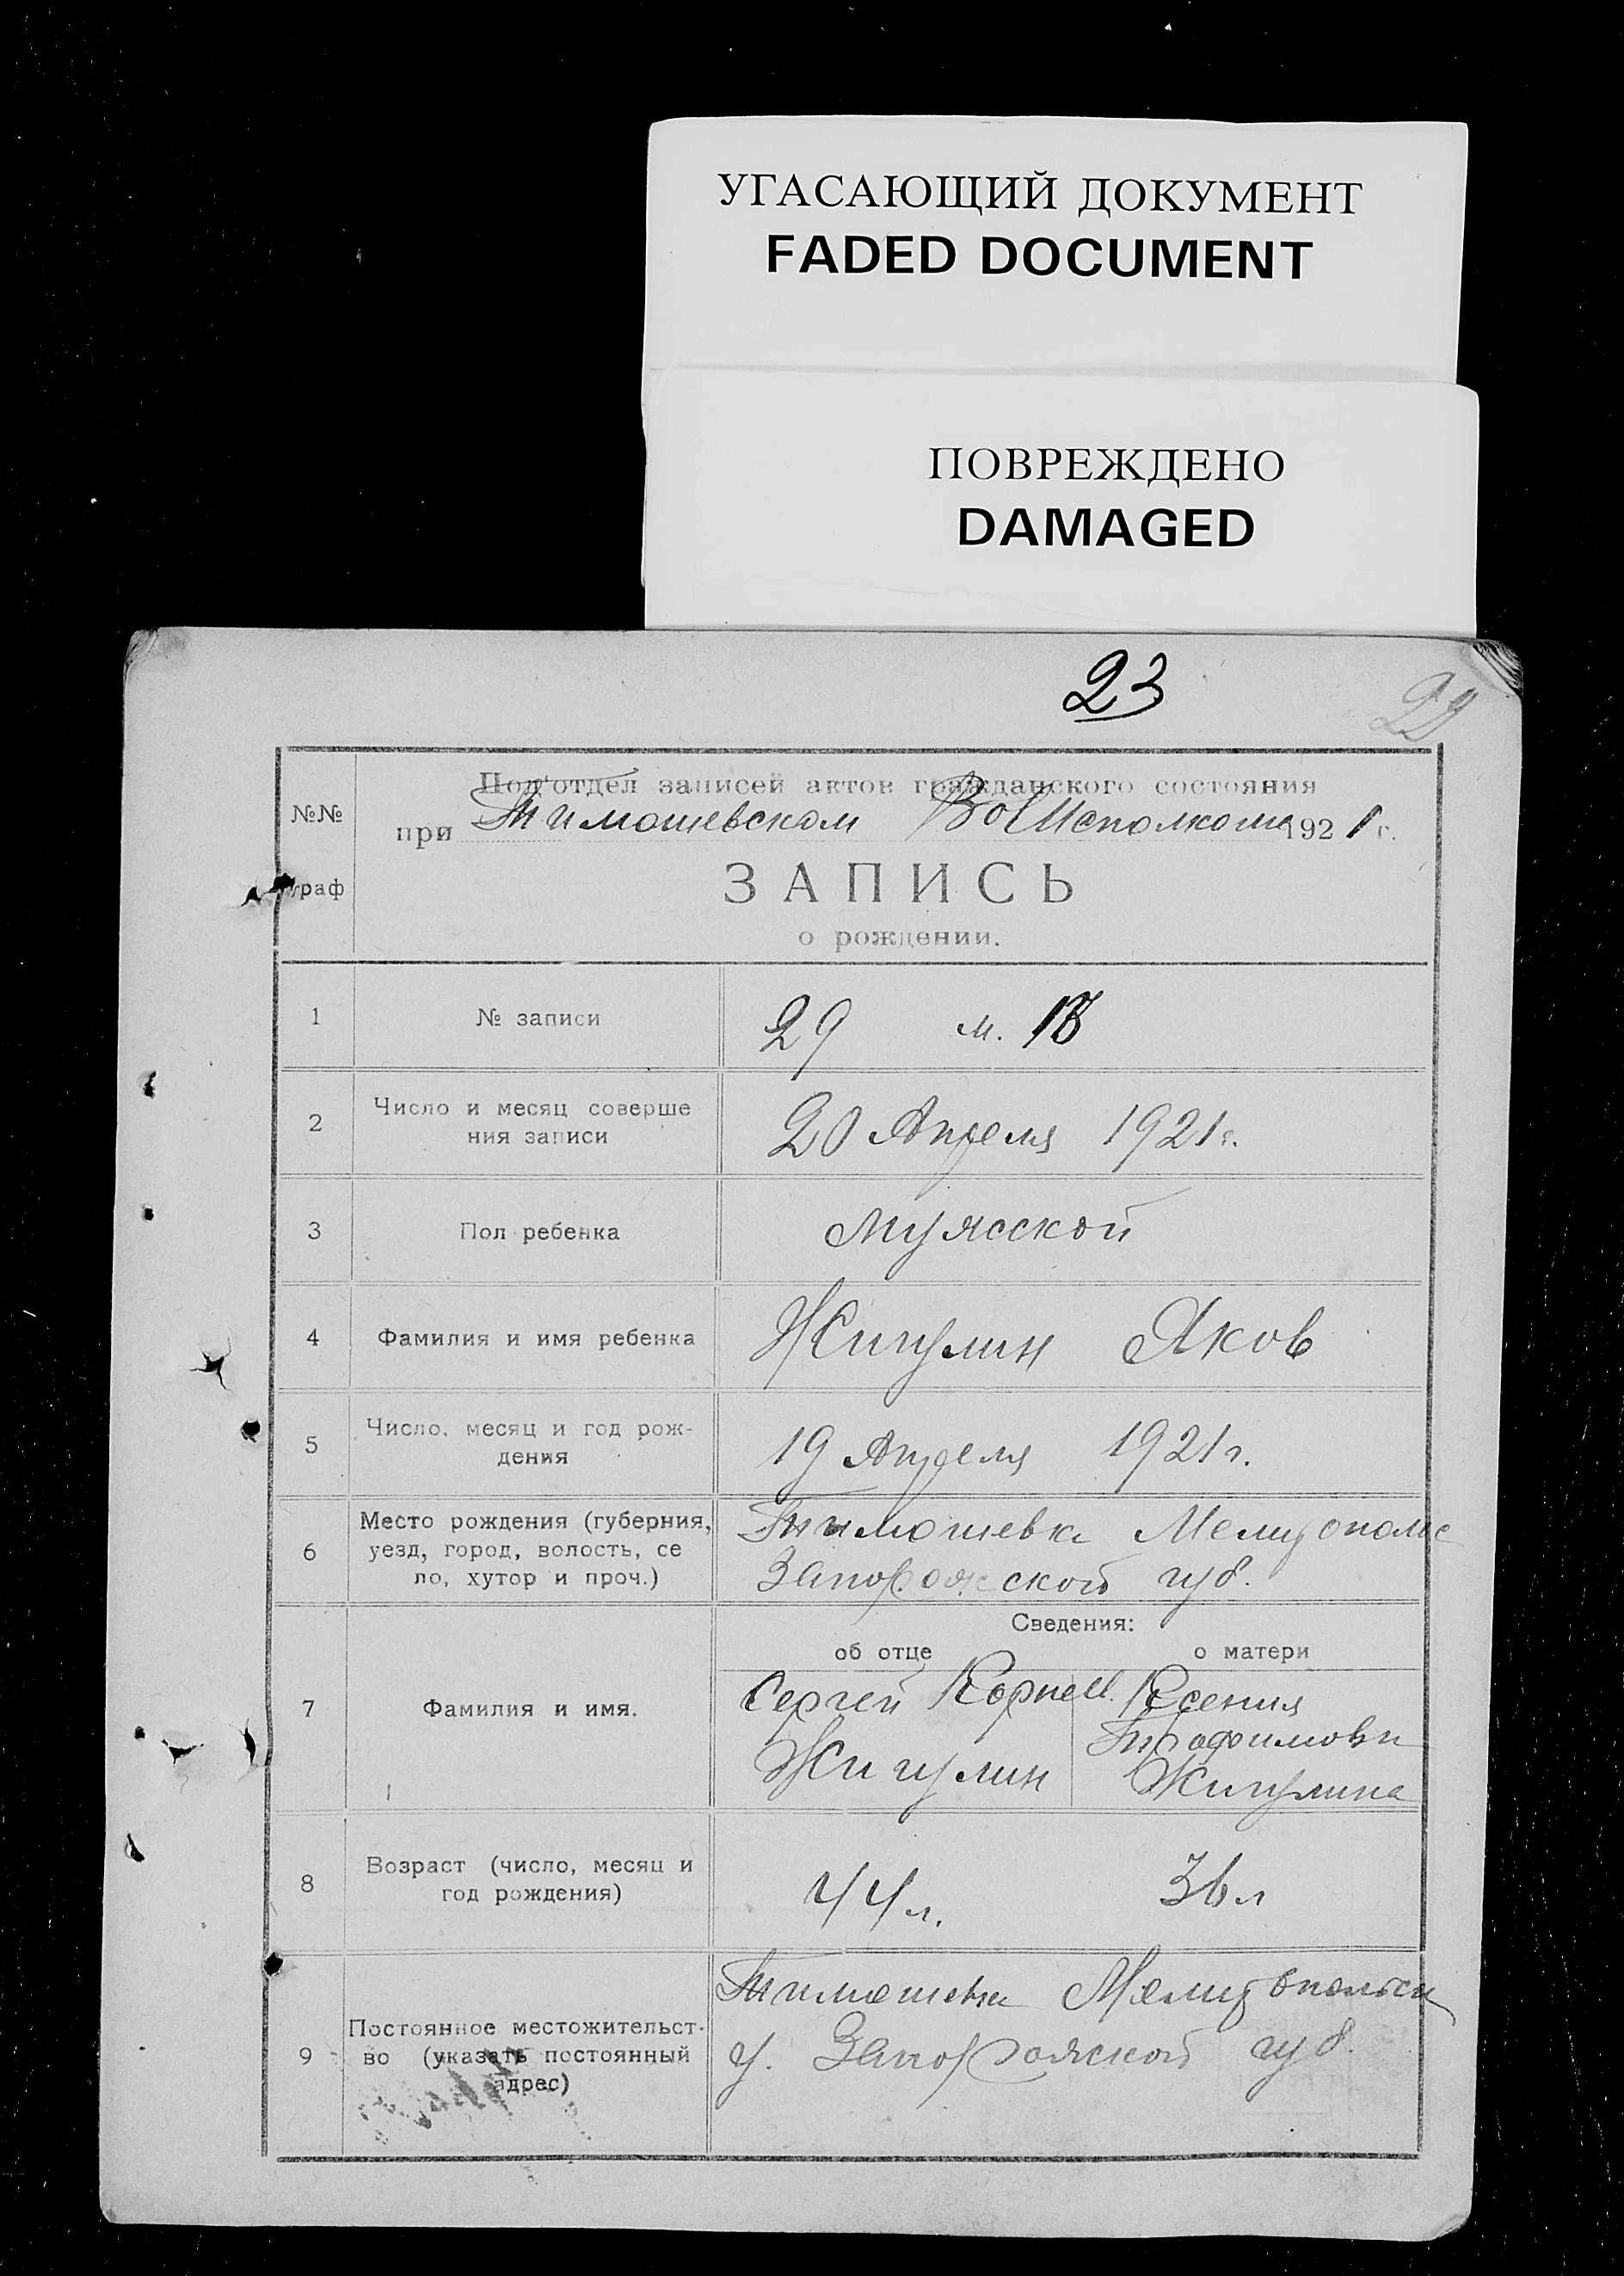 УГАСАЮЩИЙ ДОКУМЕНТ
FADED DOCUMENT
ПОВРЕЖДЕНО
DAMAGED
23
29
№№
граф
Под'отдел записей актов гражданского состояния
при Тимошевском ВолИсполкоме 1921 г.
ЗАПИСЬ
о рождении.
1
№ записи
29 м.
2
Число и месяц соверше
ния записи
20 Апреля 1921 г.
3
Пол ребенка
Мужской
4
Фамилия и имя ребенка
Жигулин Яков
5
Число, месяц и год рож-
дения
19 Апреля 1921 г.
6
Место рождения (губерния,
уезд, город, волость, се
ло, хутор и проч.)
Тимошевка Мелитопольс
Запорожской губ.
Сведения:
об отце
о матери
7
Фамилия и имя.
Сергей Корнел.
Жигулин
Ксения
Трофимовн
Жигулина
8
Возраст (число, месяц и
год рождения)
44 л.
36 л
9
Постоянное местожительст-
во (указать постоянный
адрес)
Тимошевка Мелитопольск
у. Запорожской губ.